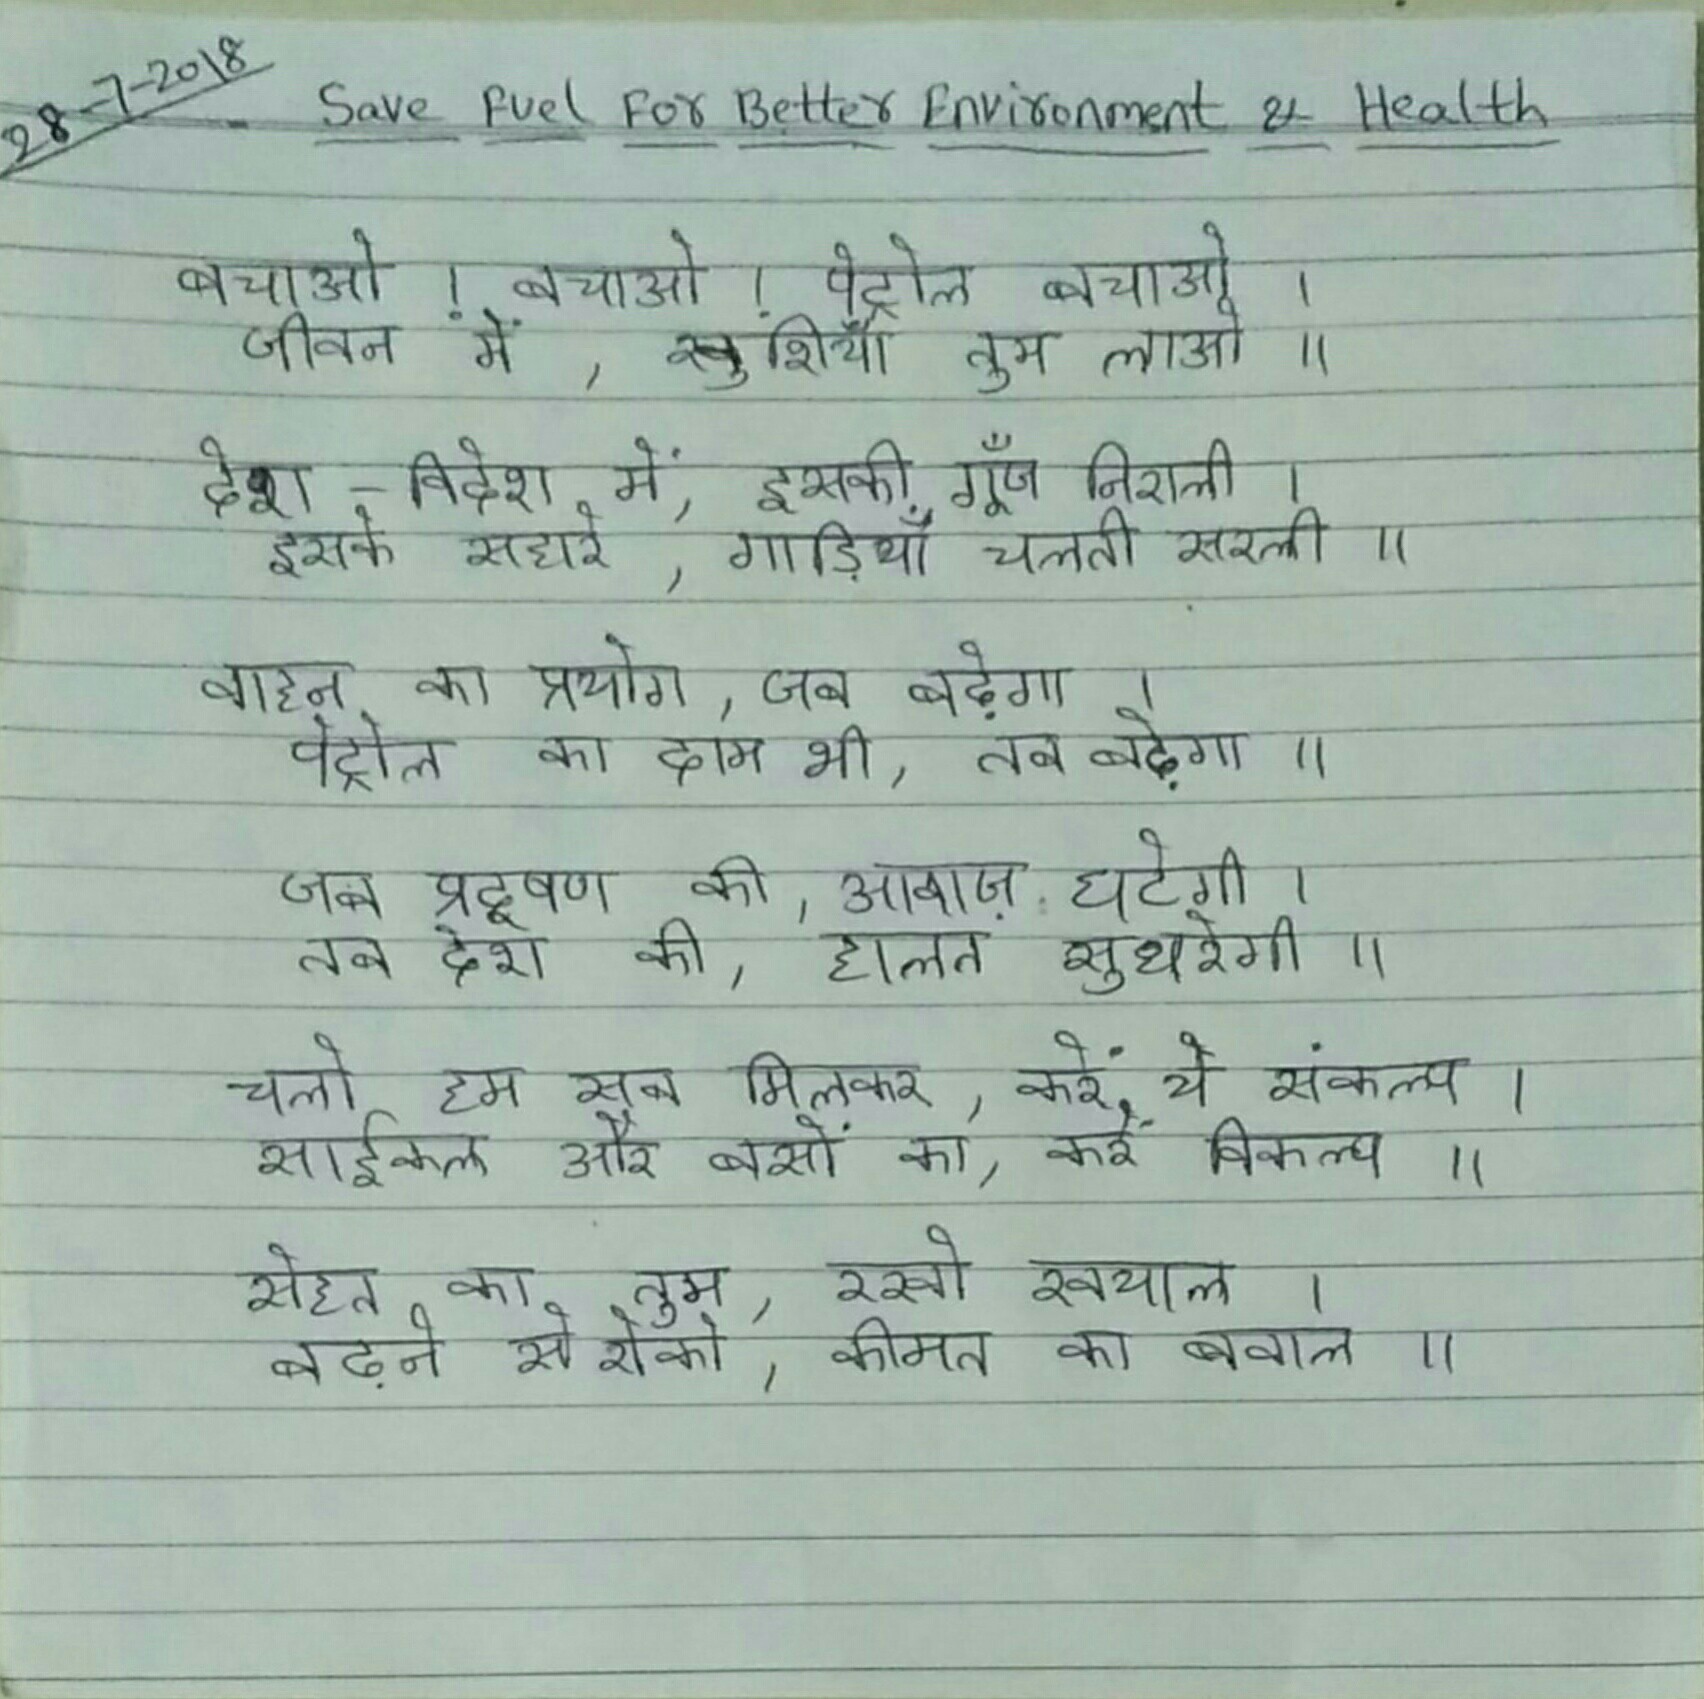 28-7-2018
Save Fuel For Better Environment & Health
बचाओ ! बचाओ ! पेट्रोल बचाओ ।
जीवन में , खुशियाँ तुम लाओ ॥
देश - विदेश में, इसकी गूँज निराली ।
इसके सहारे , गाड़ियाँ चलती सरली ॥
वाहन का प्रयोग , जब बढ़ेगा ।
पेट्रोल का दाम भी, तब बढ़ेगा ॥
जब प्रदूषण की , आवाज़ घटेगी ।
तब देश की, हालत सुधरेगी ॥
चलो हम सब मिलकर , करें ये संकल्प ।
साईकल और बसों का, करें विकल्प ॥
सेहत का तुम, रखो ख्याल ।
बढ़ने से रोको , कीमत का बवाल ॥